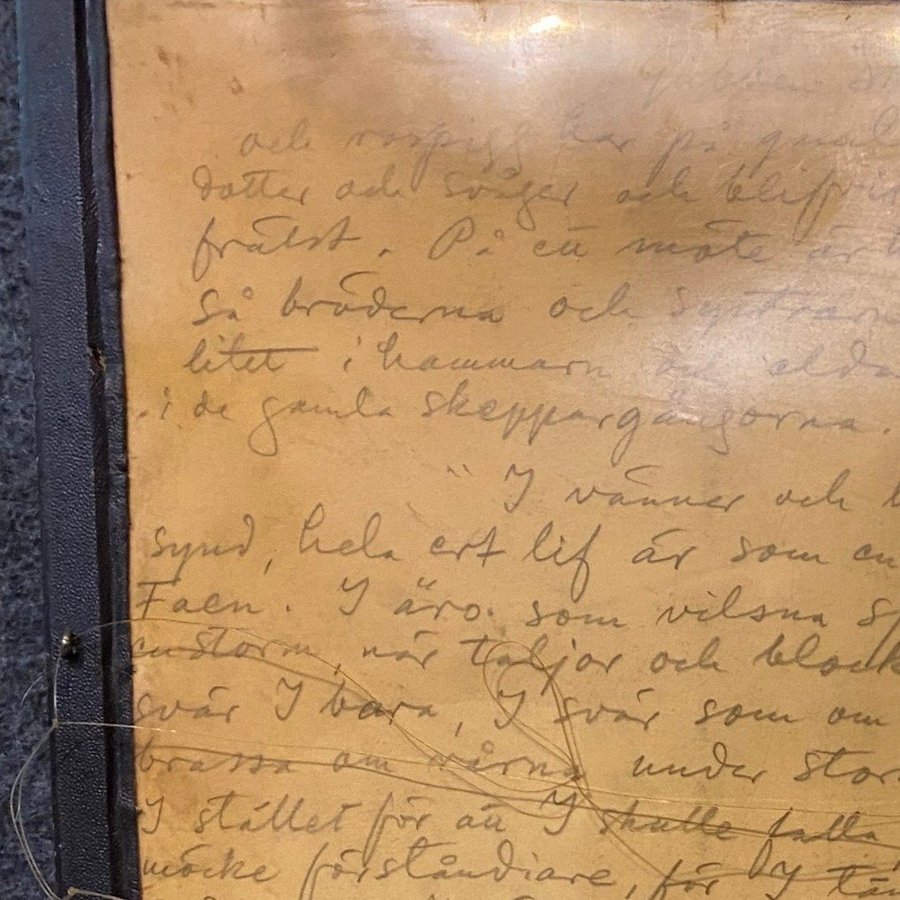 och rospigg har på
dotter och svåger och blifvit
frälst. På ett möte är
så bröderna och systrarn
litet i hammarn och elda
i de gamla skeppargångorna.
"I vänner och
synd, hela ert lif är som en
Faen. I äro som vilsna
när taljor och block
svär I bara, I svär som om
brassa om rårna under stor
I stället för att I skulle falla
möcke förståndiare, för I tän